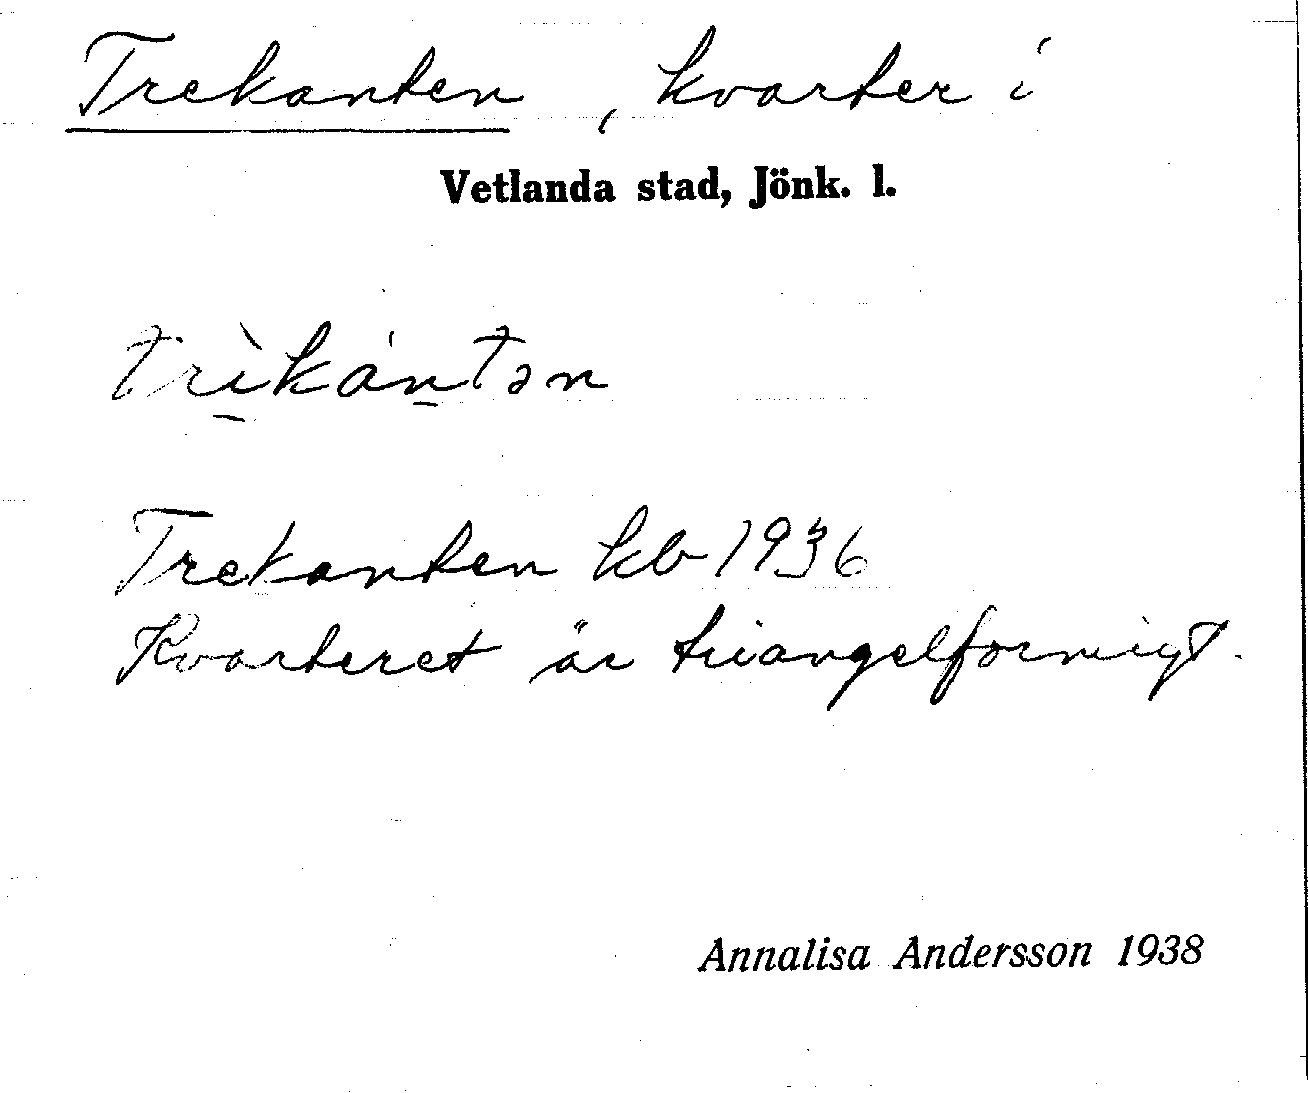 Trekanten, kvarter i
Vetlanda stad, Jönk. l.
trìkántən
Trekanten kb 1936
Kvarteret är triangelformigt.
Annalisa Andersson 1938